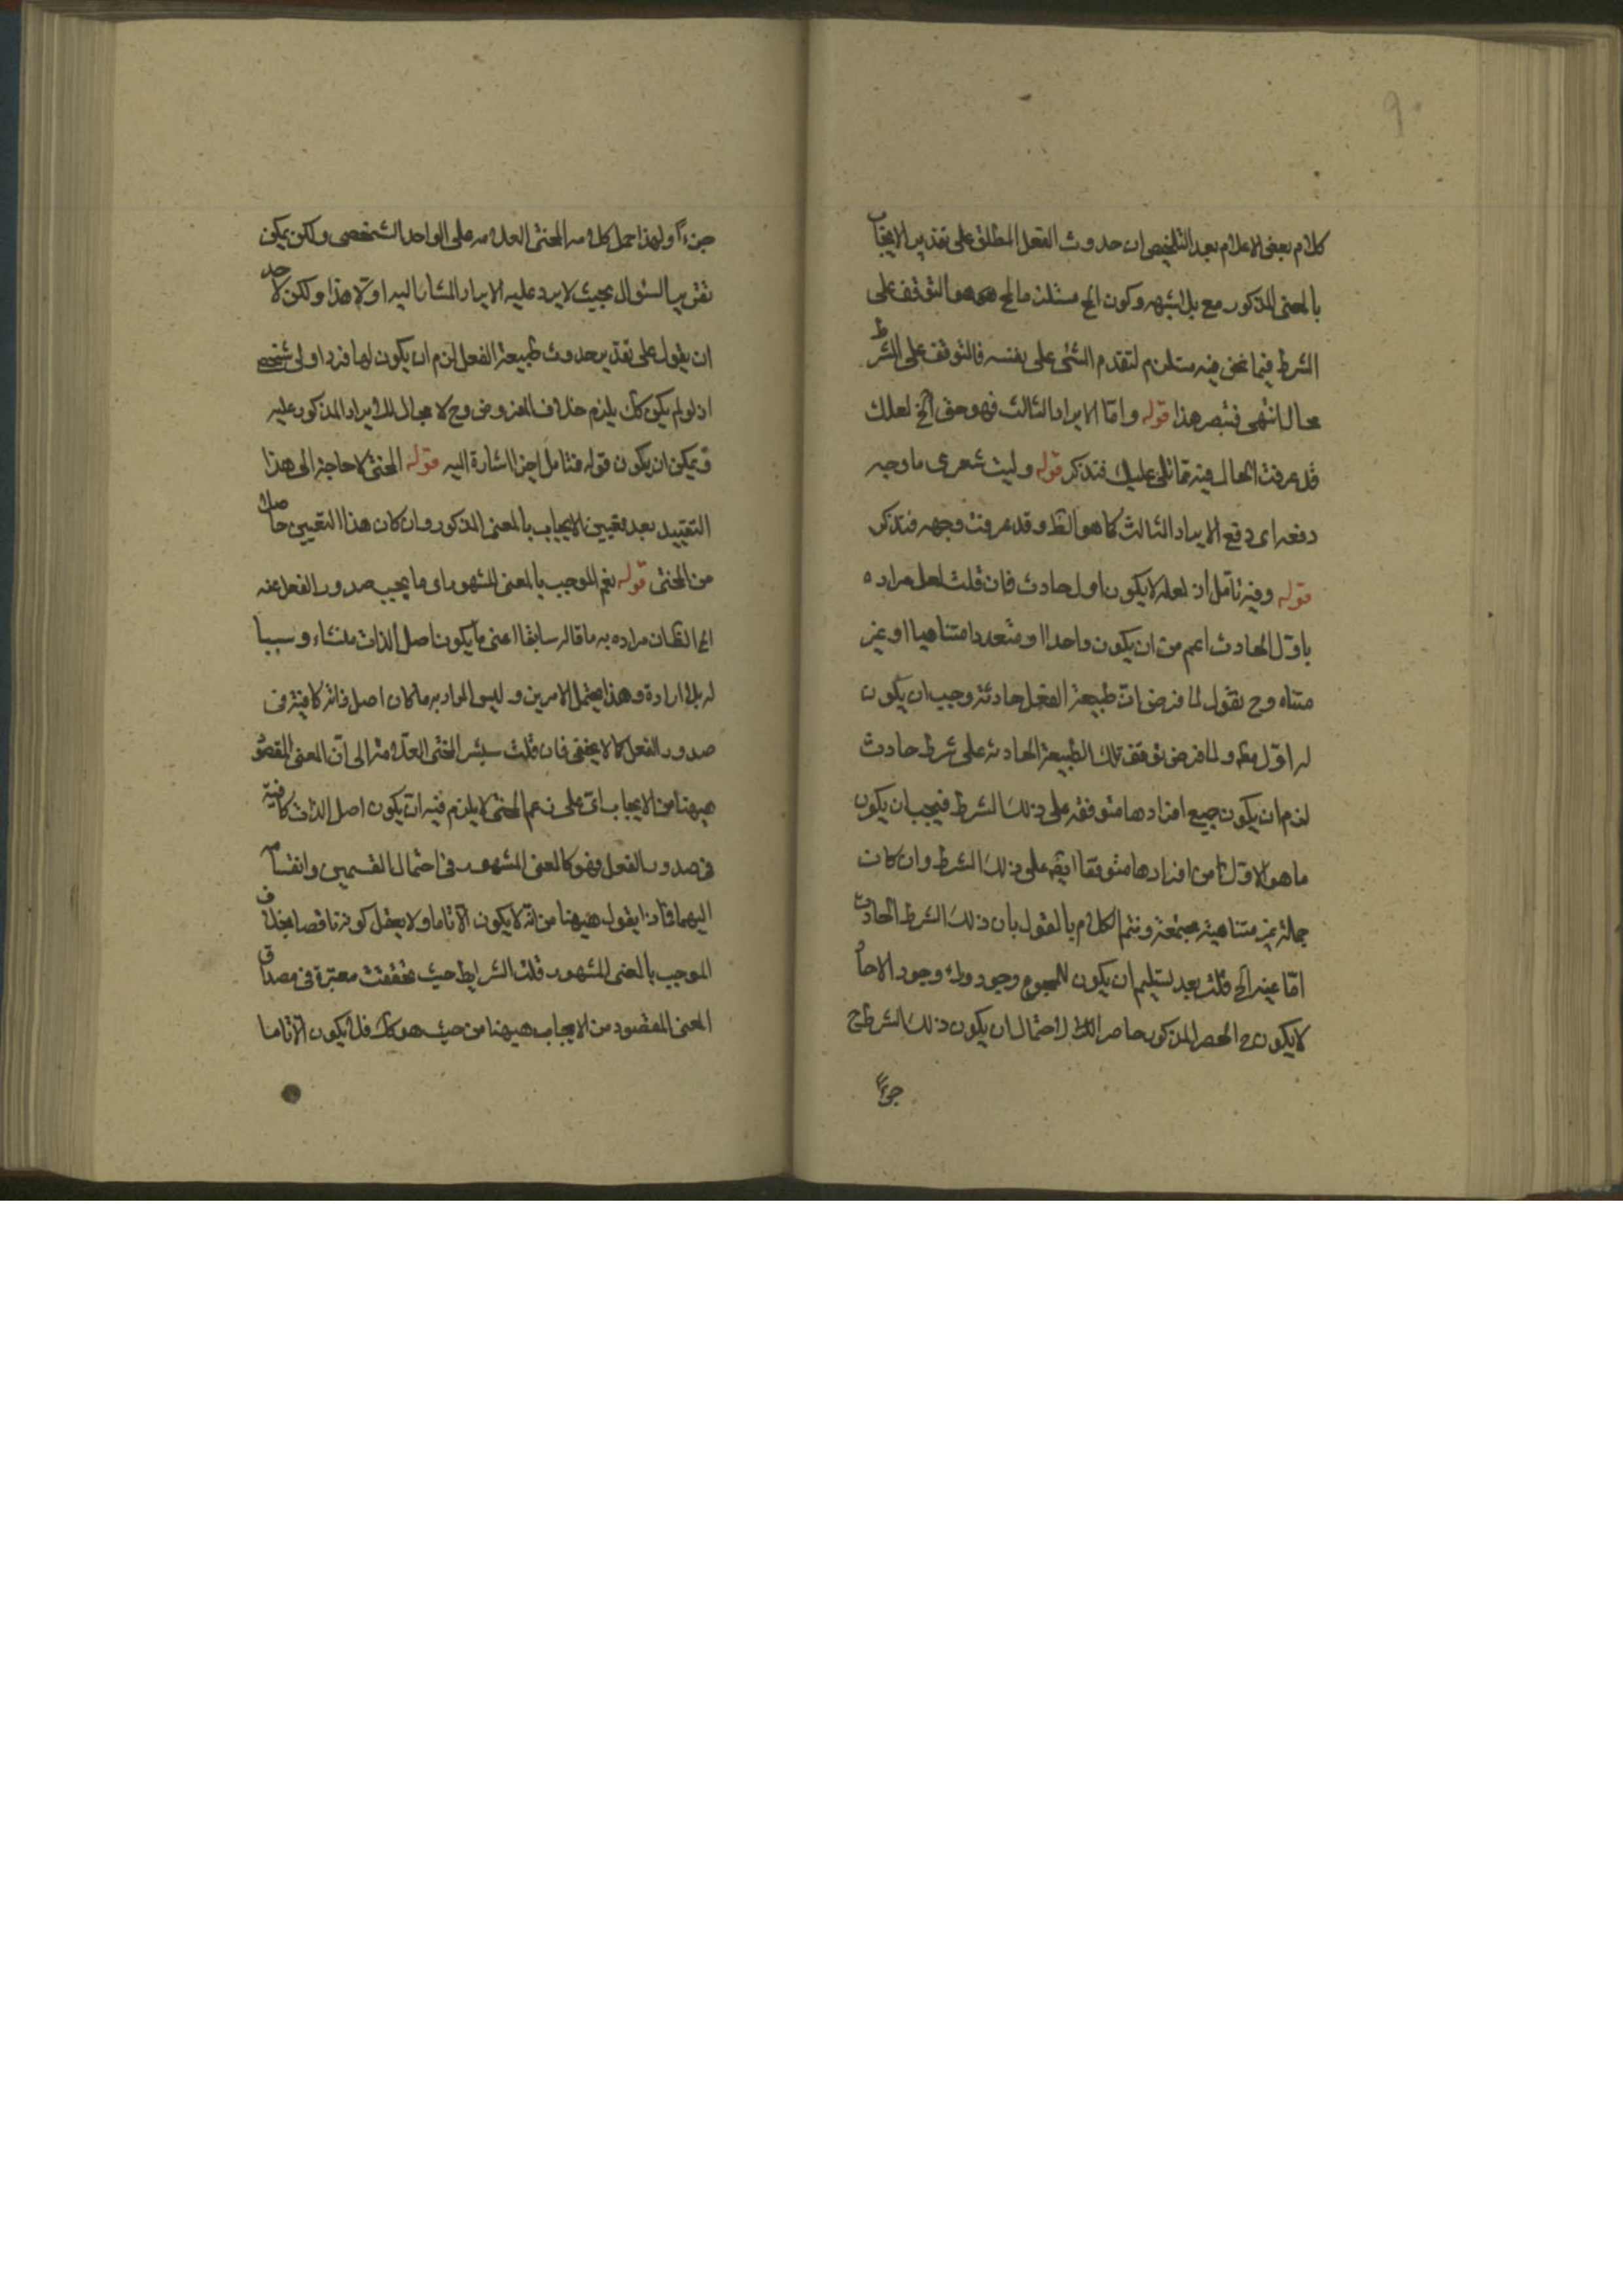 ٩٠
كلام بعض الاعلام بعد التلخيص ان حدوث الفعل المطلق على تقدير الايجاب
بالمعنى المذكور مع بل لشبهه وكون الخ مستلزما لمح هو التوقف على
الشرط فيما نحن فيه مستلزم لتقدم الشئ على نفسه فالتوقف على الشرط
محال انتهى فتبصر هذا قوله واما الايراد الثالث فهو حق الخ لعلك
قد عرفت الحال فيه مما تلى عليك فتذكر قوله وليت شعرى ما وجه
دفعه اى دفع الايراد الثالث كما هو الظ وقد عرفت وجهه فتذكر
قوله وفيه تامل اذ لعله لا يكون اول حادث فان قلت لعل مراده
باول الحادث اعم من ان يكون واحدا او متعددا متناهيا او غير
متناه وح نقول لما فرض ان طبيعة الفعل حادثة وجب ان يكون
له اول ولما فرض توقف تلك الطبيعة الحادثة على شرط حادث
لزم ان يكون جميع افرادها متوقفه على ذلك الشرط فيجب ان يكون
ما هو الاول من افرادها متوقفا ايضه على ذلك الشرط وان كان
جملة غير متناهية مجتمعة ونتم الكلام بالقول بان ذلك الشرط الحادث
اما عينه الخ قلت بعد تسليم ان يكون للمجموع وجود وراء وجود الاحاد
لا يكون ح الحصر المذكور حاصرا لاحتمال ان يكون ذلك الشرط ح
جزءاً
جزءاً ولهذا حمل كلامه المحشى العلامه على الواحد الشخصى ولكن يمكن
تقرير السئوال بحيث لا يرد عليه الايراد المشار اليه اولا هذا ولكن لاحد
ان يقول على تقدير حدوث طبيعة الفعل لزم ان يكون لها فرد اولى شخصى
اذ لو لم يكن كك يلزم خلاف المفروض وح لا مجال للايراد المذكور عليه
ويمكن ان يكون قوله فتامل اخرا اشارة اليه قوله المحشى لا حاجة الى هذا
التقييد بعد تعيين الايجاب بالمعنى المذكور وان كان هذا التعيين حاصلا
من المحشى قوله نعم الموجب بالمعنى المشهور اى ما يجب صدور الفعل عنه
الخ الظ ان مراده به ما قاله سابقا اعنى ما يكون اصل الذات منشاء وسببا
له بلا ارادة وهذا يحتمل الامرين وليس المراد به ما كان اصل ذاته كافية فى
صدور الفعل كما لا يخفى فان قلت سيشير المحشى العلامة الى ان المعنى المقصود
هيهنا من الايجاب على زعم المحشى لا يلزم فيه ان يكون اصل الذات كافية
فى صدور الفعل فهو كالمعنى المشهور فى احتمال القسمين وانقسامه
اليهما فاذا يقول هيهنا من انه لا يكون الا تاما ولا يعقل كونه ناقصا بخلاف
الموجب بالمعنى المشهور قلت الشرايط حيث تحققت معتبرة فى مصداق
المعنى المقصود من الايجاب هيهنا من حيث هو كك فلا يكون الا تاما